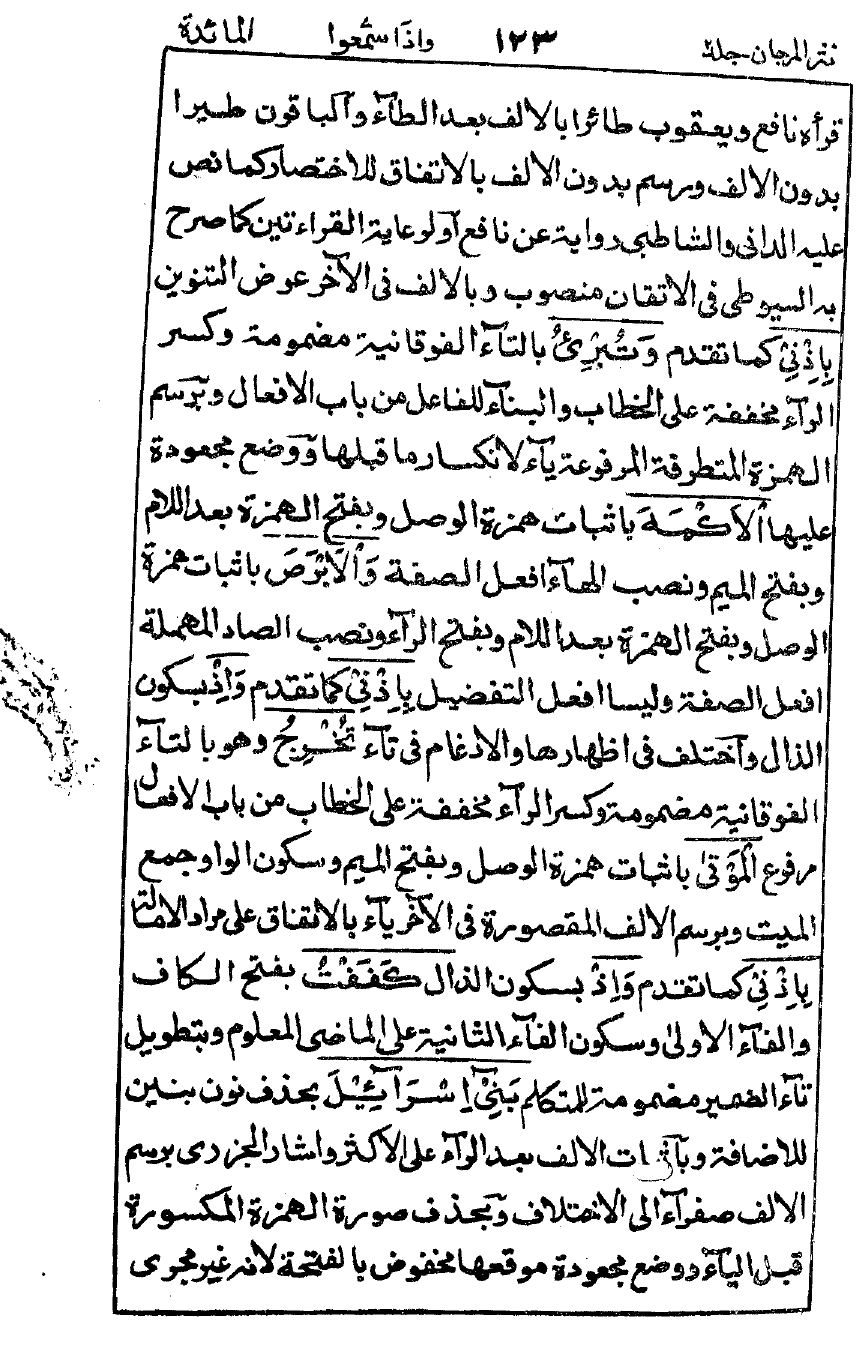 نثر المرجان - جلد ١٢٣ واذا سمعوا المائدة
قرأه نافع ويعقوب طائرا بالالف بعد الطآء والباقون طيرا
بدون الالف ورسم بدون الالف بالاتفاق للاختصار كما نص
عليه الدانى والشاطبى رواية عن نافع أو لوعاية القراءتين كما صرح
به السيوطى فى الاتقان منصوب وبالالف فى الآخر عوض التنوين
بِاِذْنِىْ كما تقدم وَتُبْرِئُ بالتآء الفوقانية مضمومة وكسر
الرآء مخففة على الخطاب والبنآء للفاعل من باب الافعال وبرسم
الهمزة المتطرفة المرفوعة يآء لانكسار ما قبلها ووضع مجعودة
عليها الْاَكْمَهَ باثبات همزة الوصل وبفتح الهمزة بعد اللام
وبفتح الميم ونصب الهآء افعل الصفة وَالْاَبْرَصَ باثبات همزة
الوصل وبفتح الهمزة بعد اللام وبفتح الرآء ونصب الصاد المهملة
افعل الصفة وليسا افعل التفضيل بِاِذْنِىْ كما تقدم وَاِذْ بسكون
الذال واختلف فى اظهارها والادغام فى تآء تُخْرِجُ وهو بالتآء
الفوقانية مضمومة وكسر الرآء مخففة على الخطاب من باب الافعال
مرفوع الْمَوْتٰى باثبات همزة الوصل وبفتح الميم وسكون الواو جمع
الميت وبرسم الالف المقصورة فى الآخر يآء بالاتفاق على مراد الامالة
بِاِذْنِىْ كما تقدم وَاِذْ بسكون الذال كَفَفْتُ بفتح الكاف
والفآء الاولى وسكون الفآء الثانية على الماضى المعلوم وبتطويل
تآء الضمير مضمومة للمتكلم بَنِىْٓ اِسْرَآئِيْلَ بحذف نون بنين
للاضافة وباثبات الالف بعد الرآء على الاكثر واشار الجزرى برسم
الالف صفرآء الى الاختلاف وبحذف صورة الهمزة المكسورة
قبل اليآء ووضع مجعودة موقعها مخفوض بالفتحة لانه غير مجرى